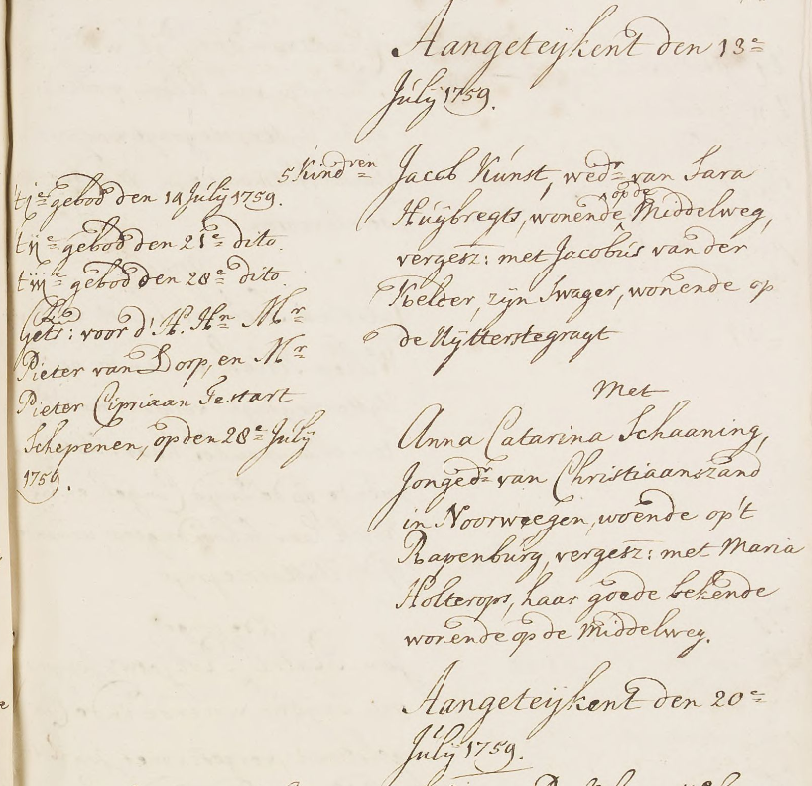 Aangeteijkent den 13e
Julij 1759.
5 Kindren
tje gebod den 14 Julij 1759.
tije gebod den 21e dito.
tiije gebod den 28e dito.
Gets: voor d' H. Hn Mr
Pieter van Dorp, en Mr
Pieter Cipriaan Testart
Schepenen, op den 28e Julij
1759.
Jacob Kunst, wedr van Sara
Huijbregts, wonende op de Middelweg,
vergesz: met Jacobus van der
Kelder, zijn Swager, wonende op
de Uijtterstegragt
Met
Anna Catarina Schaaning,
Jongedr van Christiaanszand
in Noorweegen, woende op't
Rapenburg, vergesz: met Maria
Holterops, haar goede bekende
wonende op de Middelweg.
Aangeteijkent den 20e
Julij 1759.